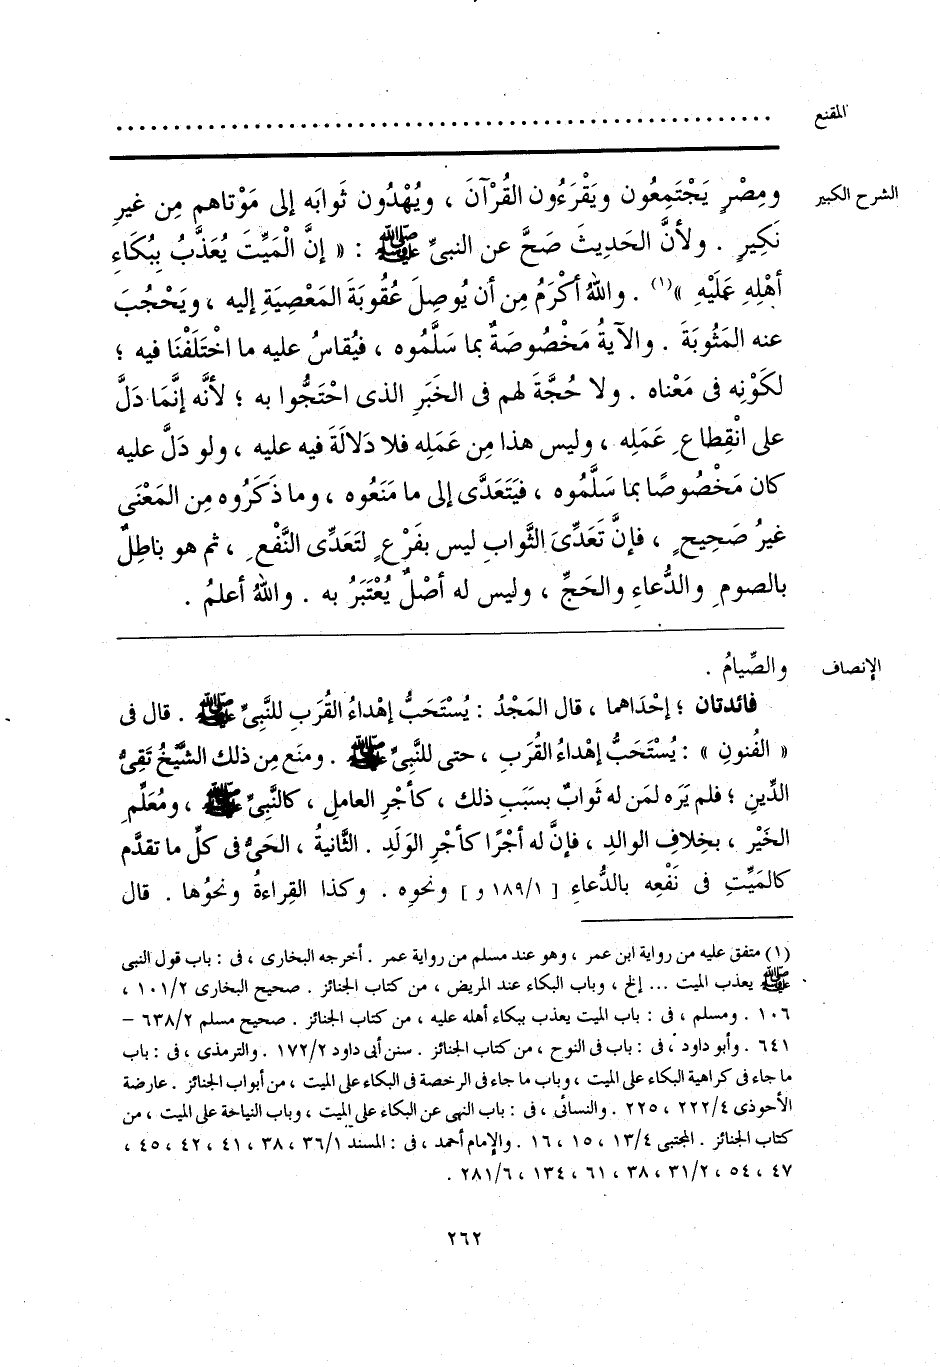 المقنع ..........................................................
الشرح الكبير ومِصْرٍ يَجْتَمِعُون ويَقْرَءُون القُرْآنَ ، ويُهْدُون ثَوابَه إلى مَوْتاهم مِن غيرِ
نَكِيرٍ . ولأنَّ الحَدِيثَ صَحَّ عن النبىِّ ﷺ : « إنَّ الْمَيِّتَ يُعَذَّبُ بِبُكَاءِ
أهْلِهِ عَلَيْهِ »(١) . واللهُ أكْرَمُ مِن أن يُوصِلَ عُقُوبَةَ المَعْصِيَةِ إليه ، ويَحْجُبَ
عنه المَثُوبَةَ . والآيةُ مَخْصُوصَةٌ بما سَلَّمُوه ، فيُقاسُ عليه ما اخْتَلَفْنا فيه ؛
لكَوْنِه فى مَعْناه . ولا حُجَّةَ لهم فى الخَبَرِ الذى احْتَجُّوا به ؛ لأنَّه إنَّمَا دَلَّ
على انْقِطاعِ عَمَلِه ، وليس هذا مِن عَمَلِه فلا دَلالَةَ فيه عليه ، ولو دَلَّ عليه
كان مَخْصُوصًا بما سَلَّمُوه ، فيَتَعَدَّى إلى ما مَنَعُوه ، وما ذَكَرُوه مِن المَعْنَى
غيرُ صَحِيحٍ ، فإنَّ تَعَدِّىَ الثَّوابِ ليس بفَرْعٍ لتَعَدِّى النَّفْعِ ، ثم هو باطِلٌ
بالصومِ والدُّعاءِ والحَجِّ ، وليس له أصْلٌ يُعْتَبَرُ به . واللهُ أعلمُ .
الإنصاف والصِّيامُ .
فائدتان ؛ إحْداهما ، قال المَجْدُ : يُسْتَحَبُّ إهْداءُ القُرَبِ للنَّبِىِّ ﷺ . قال فى
« الفُنونِ » : يُسْتَحَبُّ إهْداءُ القُرَبِ ، حتى للنَّبِىِّ ﷺ . ومنَع مِن ذلك الشَّيْخُ تَقِىُّ
الدِّينِ ؛ فلم يَرَه لمَن له ثَوابٌ بسَبَبِ ذلك ، كأجْرِ العامِلِ ، كالنَّبِىِّ ﷺ ، ومُعَلِّمِ
الخَيْرِ ، بخِلافِ الوالدِ ، فإنَّ له أجْرًا كأجْرِ الوَلَدِ . الثَّانيةُ ، الحَىُّ فى كلِّ ما تقدَّم
كالمَيِّتِ فى نَفْعِه بالدُّعاءِ [ ١٨٩/١ و ] ونحوِه . وكذا القِراءةُ ونحوُها . قال
(١) متفق عليه من رواية ابن عمر ، وهو عند مسلم من رواية عمر . أخرجه البخارى ، فى : باب قول النبى
ﷺ يعذب الميت ... إلخ ، وباب البكاء عند المريض ، من كتاب الجنائز . صحيح البخارى ١٠١/٢ ،
١٠٦ . ومسلم ، فى : باب الميت يعذب ببكاء أهله عليه ، من كتاب الجنائز . صحيح مسلم ٦٣٨/٢ –
٦٤١ . وأبو داود ، فى : باب فى النوح ، من كتاب الجنائز . سنن أبى داود ١٧٢/٢ . والترمذى ، فى : باب
ما جاء فى كراهية البكاء على الميت ، وباب ما جاء فى الرخصة فى البكاء على الميت ، من أبواب الجنائز . عارضة
الأحوذى ٢٢٢/٤ ، ٢٢٥ . والنسائى ، فى : باب النهى عن البكاء على الميت ، وباب النياحة على الميت ، من
كتاب الجنائز . المجتبى ١٣/٤ ، ١٥ ، ١٦ . والإمام أحمد ، فى : المسند ٣٦/١ ، ٣٨ ، ٤١ ، ٤٢ ، ٤٥ ،
٤٧ ، ٥٤ ، ٣١/٢ ، ٣٨ ، ٦١ ، ١٣٤ ، ٢٨١/٦ .
٢٦٢